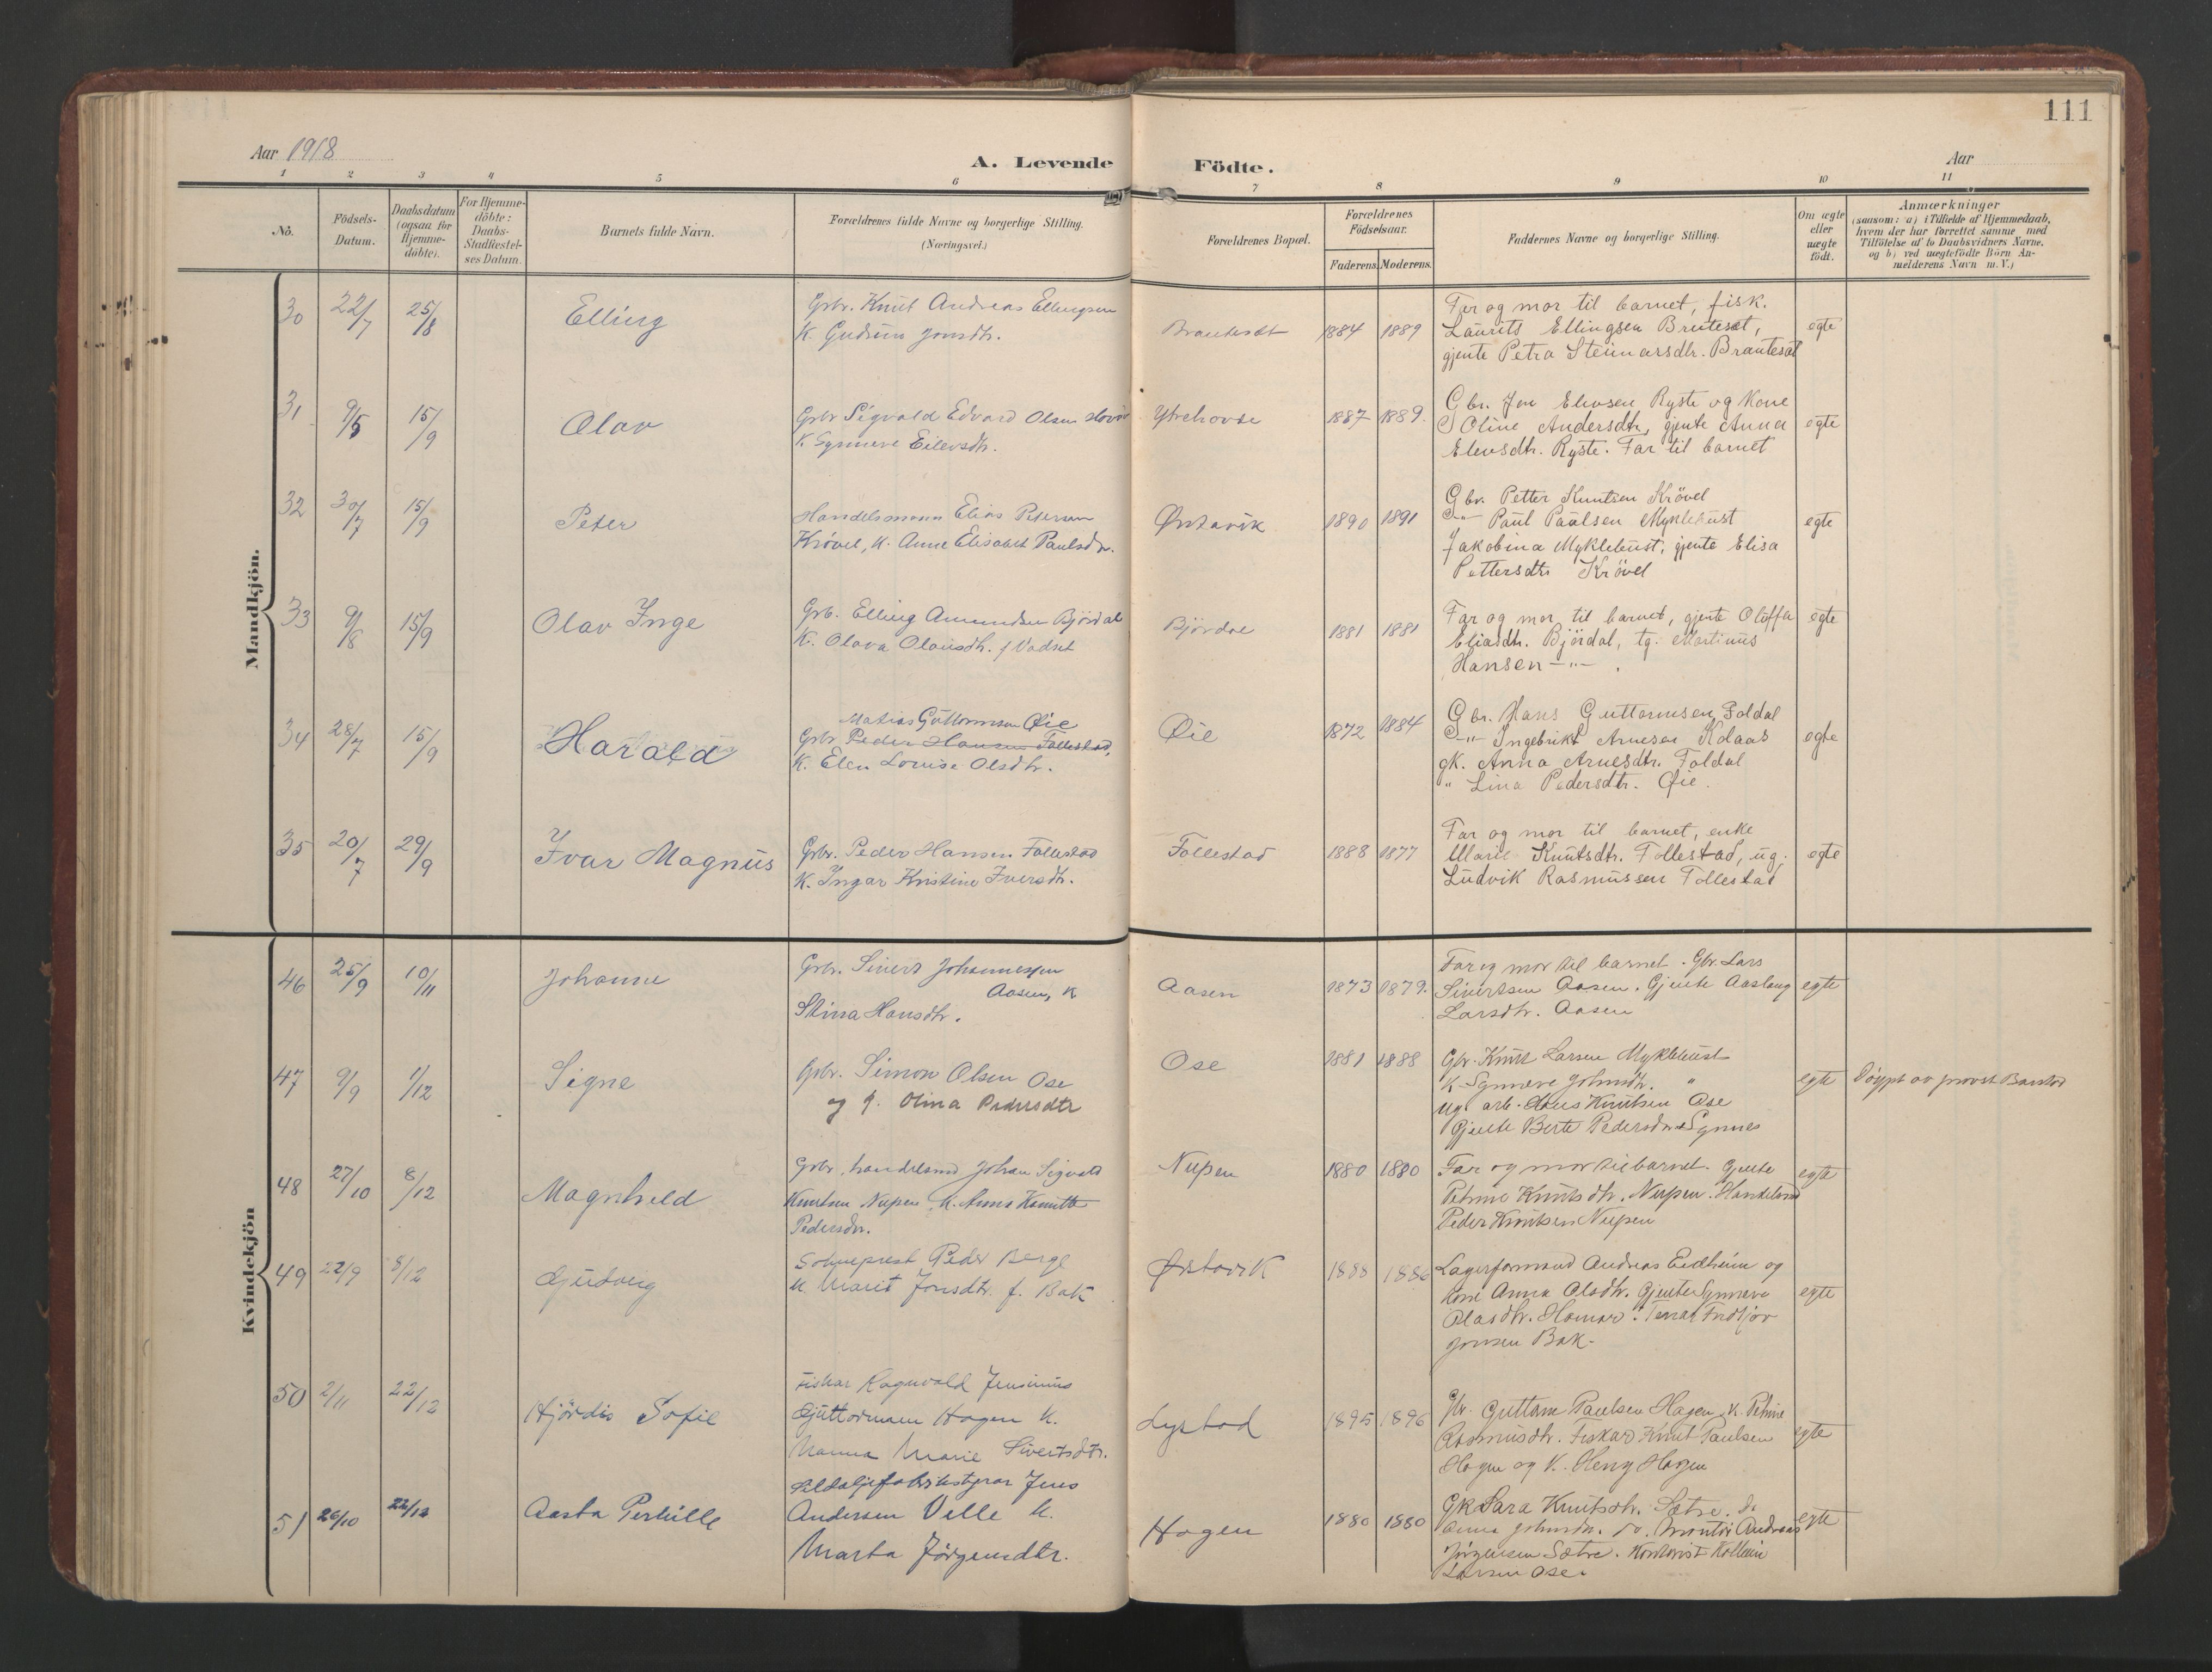 111
Aar 1918
A. Levende Födte.
Aar
1 2 3 4 5 6 7 8 9 10 11
No.
Födsels-
Datum.
Daabsdatum
(ogsaa for
Hjemme-
döbte).
For Hjemme-
döbte:
Daabs-
Stadfæstel-
ses Datum.
Barnets fulde Navn.
Forældrenes fulde Navne og borgerlige Stilling.
(Næringsvei.)
Forældrenes Bopæl.
Forældrenes
Födselsaar.
Faderens. Moderens.
Faddernes Navne og borgerlige Stilling.
Om ægte
eller
uægte
födt.
Anmærkninger
(saasom: a) i Tilfælde af Hjemmedaab,
hvem der har forrettet samme med
Tilföielse af to Daabsvidners Navne,
og b) ved uægtefödte Börn An-
melderens Navn m. V.)
Mandkjön.
30 22/7 25/8 Elling
Gbr. Knut Andreas Ellingsen
K. Gudrun Jonsdtr.
Brautesæt 1884 1889
Far og mor til barnet, fisk.
Laurits Ellingsen Brautesæt,
gjente Petra Steinarsdtr. Brautesæt
egte
31 9/5 15/9 Olav
Gbr Sigvald Edvard Olsen Hovde
K. Synneve Eilevsdtr.
Ytrehovde 1887 1889.
Gbr. Jon Elevsen Ryste og Kone
Oline Andersdtr, gjente Anna
Elevsdtr. Ryste. Far til barnet
egte
32 30/7 15/9 Peter
Handelsmann Elias Petersen
Krövel, K. Anne Elisabet Paulsdtr.
Örstavik 1890 1891
Gbr. Petter Knutsen Krövel
-"- Paul Paulsen Myklebust
Jakobina Myklebust, gjente Elisa
Pettersdtr Krövel
egte
33 9/8 15/9 Olav Inge
Gbr. Elling Amundsen Björdal
K. Olava Olausdtr. f Vadset
Björdal 1881 1881
Far og mor til barnet, gjente Oloffa
Eliasdtr. Björdal, tg. Martinus
Hansen -"- .
egte
34 28/7 15/9 Harald
Matias Guttormsen Öie
Gbr Peder Hansen Follestad,
K. Elen Louise Olsdtr.
Öie 1872 1884
Gbr. Hans Guttormsen Foldal
-"- Ingebrikt Arnesen Kolaas
gk. Anna Arnesdtr. Foldal
" Lina Pedersdtr. Öie.
egte
35 20/7 29/9 Ivar Magnus
Gbr. Peder Hansen Follestad
K. Ingar Kristine Iversdtr.
Follestad 1888 1877
Far og mor til barnet, enke
Marie Knutsdtr. Follestad, ug.
Ludvik Rasmussen Follestad
egte
Kvindekjön
46 25/9 10/11 Johanne
Gbr. Sivert Johannessen
Aasen, K
Stina Hansdtr.
Aasen 1873 1879.
Far og mor til barnet. Gbr. Lars
Sivertsen Aasen. Gjente Aaslaug
Larsdtr. Aasen
egte
47 9/9 1/12 Signe
Gbr. Simon Olsen Ose
og g. Olina Pedersdtr
Ose 1881 1888
Gbr. Knut Larsen Myklebust
K. Synneve Johnsdtr. "
ug. arb. Hans Knutsen Ose
Gjente Berte Pedersdtr Synnes
egte Döypt av provst Barstad
48 27/10 8/12 Magnhild
Gbr. handelsmd Johan Sigvald
Knutsen Nupen, K. Anna Knutta
Pedersdtr.
Nupen 1880 1880
Far og mor til barnet. Gjente
Petrine Knutsdtr. Nupen. Handelsmd
Peder Knutsen Nupen
egte
49 22/9 8/12 Gudveig
Sokneprest Peder Berge
K Marit Jonsdtr. f. Bak
Örstavik 1888 1886
Lagerformand Andreas Eidheim og
kone Anna Olsdtr. Gjente Synneve
Olasdtr. Hamar. Fridtjov
Jonsen Bak.
egte
50 2/11 22/12 Hjördis Sofie
Fiskar Ragnvald Jensinius
Guttormsen Hagen K.
Nanna Marie Sivertsdtr.
Lystad 1895 1896
Gbr. Guttorm Paulsen Hagen, K. Petrine
Rasmusdtr. Fiskar Knut Paulsen
Hagen og K. Henny Hagen
egte
51 26/10 22/12 Aasta Pernille
Sildoljefabrikstyrar Jens
Andersen Velle K.
Marta Jörgensdtr.
Hagen 1880 1880
Gk Sara Knutsdtr. Sætre. do
Anna Johnsdtr. do. Montör Andreas
Jörgensen Sætre. Kontorist
Larsen Ose.
egte